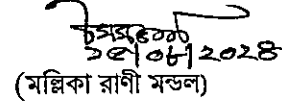 ২৫।০৮।২০২৪
(মল্লিকা রাণী মন্ডল)